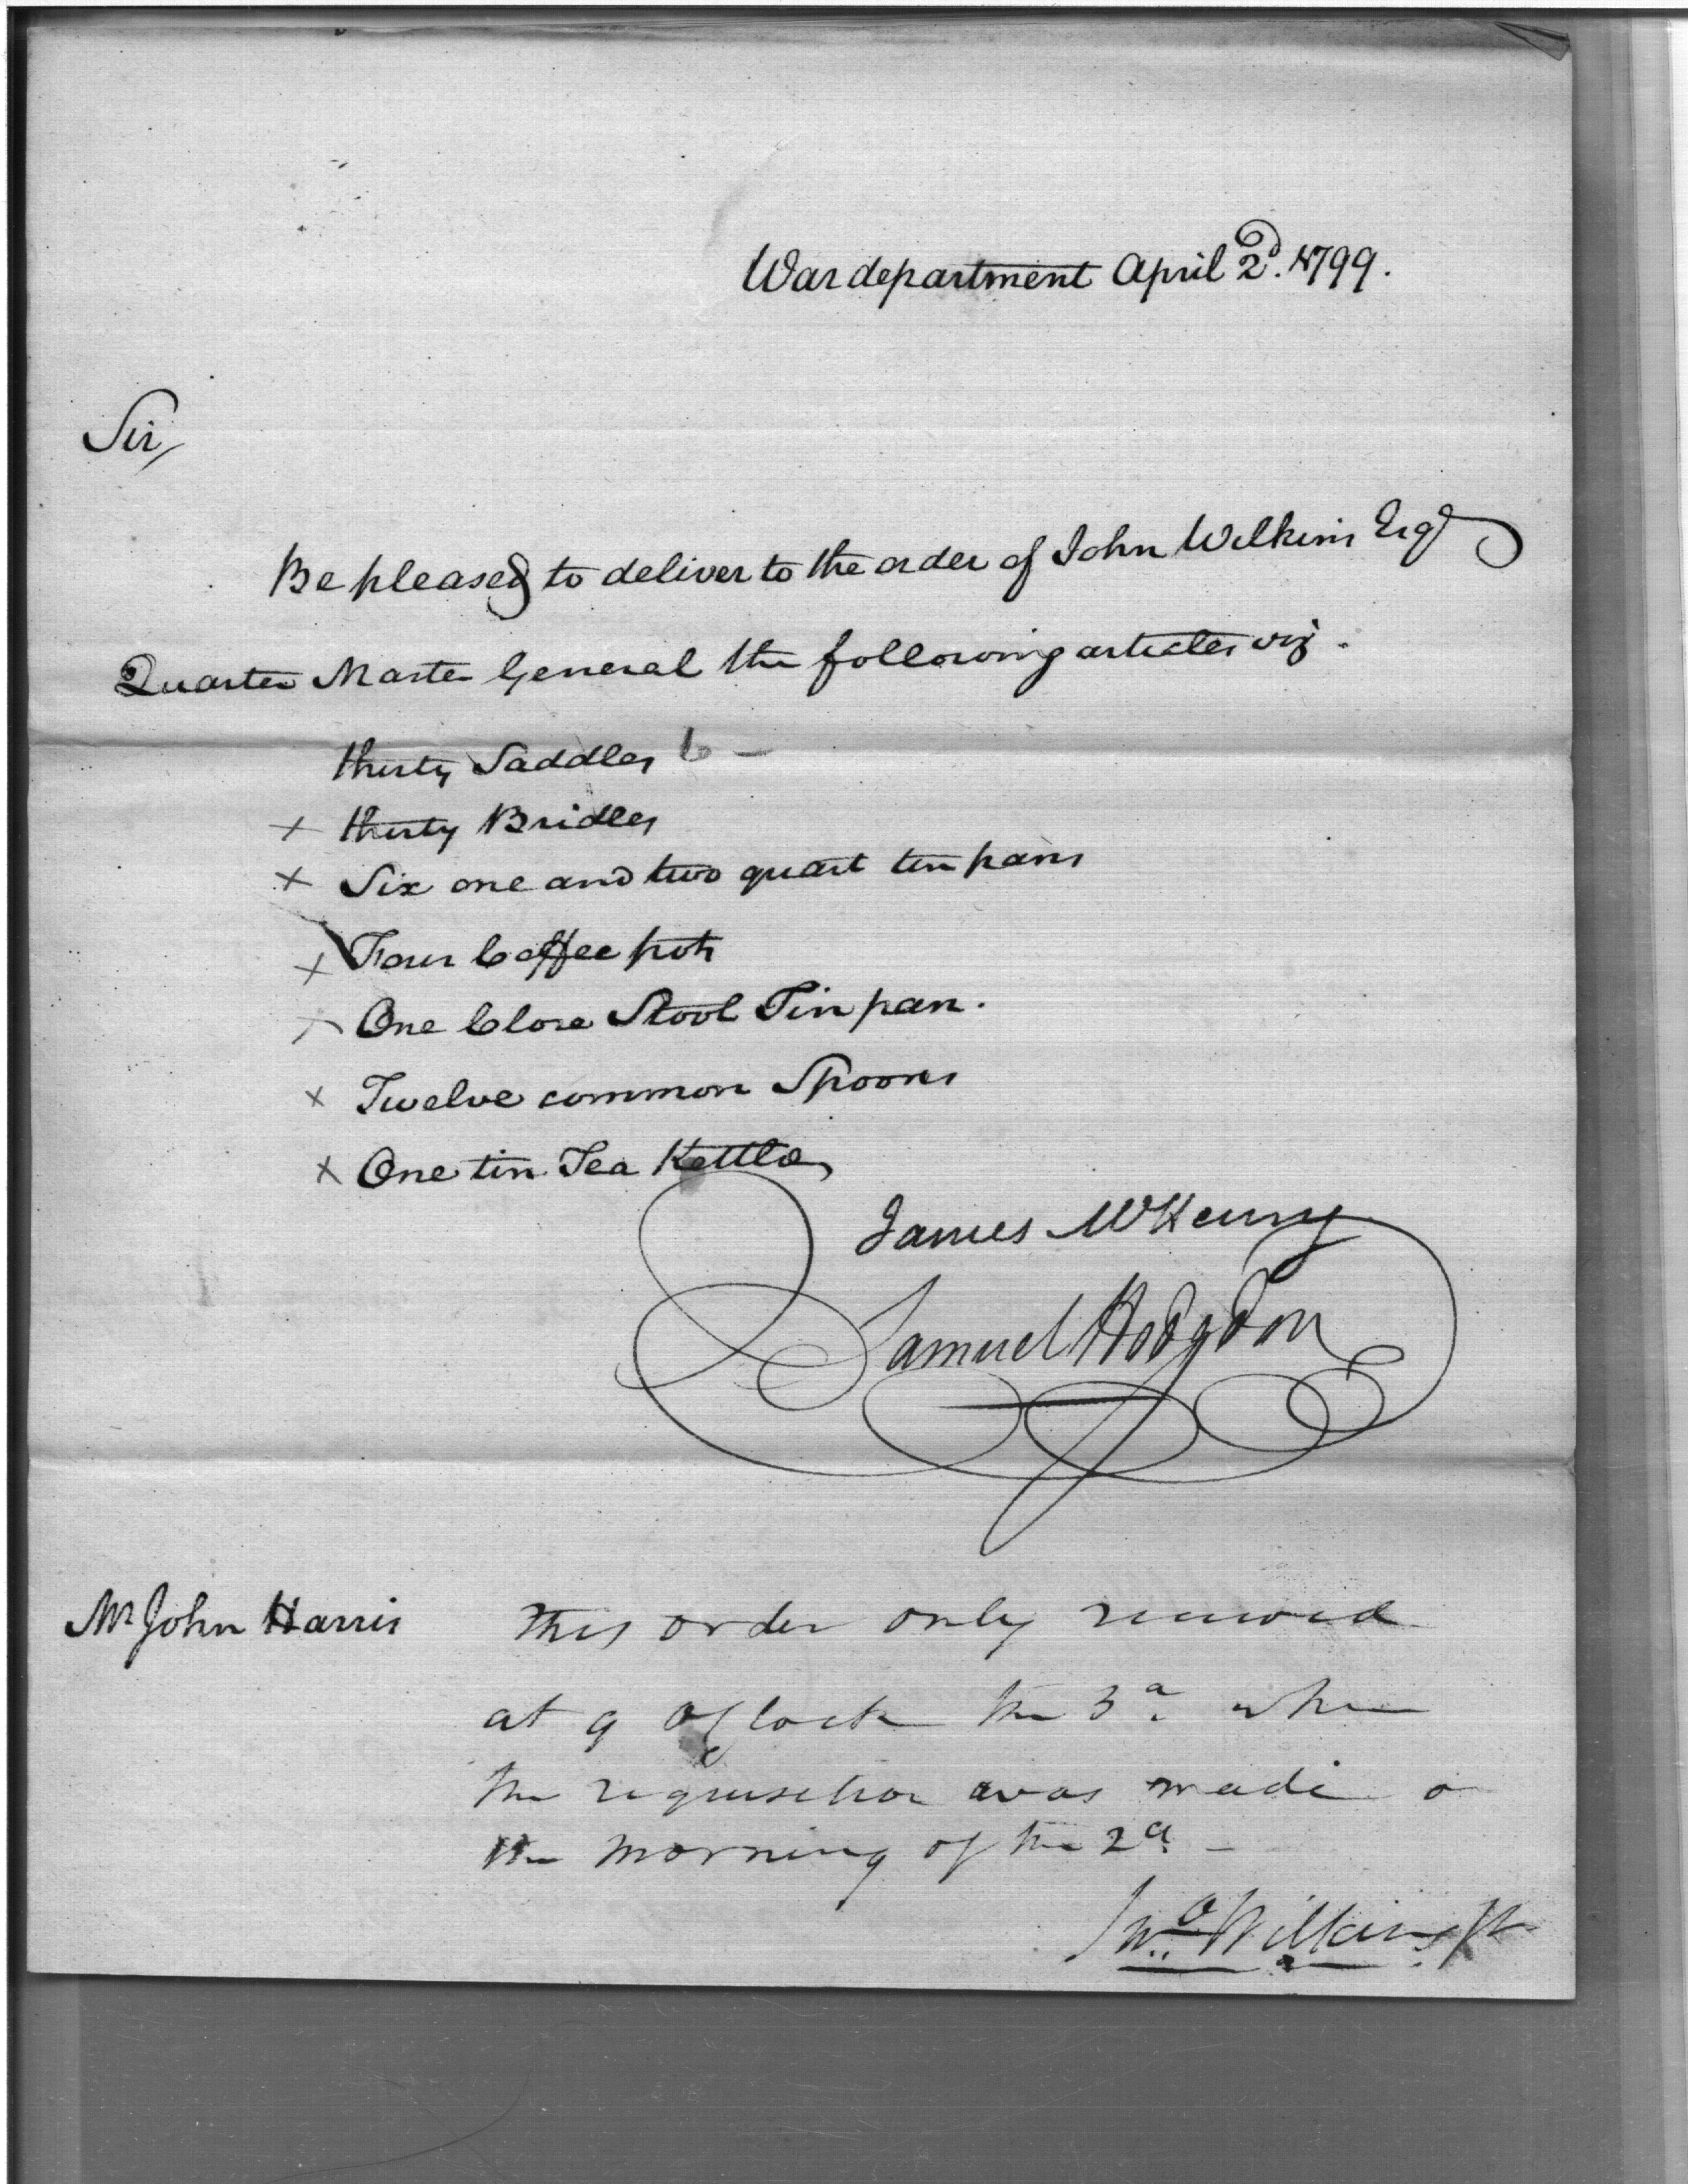 War department April 2d. 1799.
Sir,
Be pleased to deliver to the order of John Wilkins Esqr
Quarter Master General the following articles viz.
thirty Saddles 6 —
x thirty Bridles
x Six one and two quart tin pans
x Four Coffee pots
x One Close Stool Tin pan.
x Twelve common Spoons
x One tin Tea Kettle,
James McHenry
Samuel Hodgdon
Mr John Harris
This order only received
at 9 oClock the 3d. when
the requisition was made o
the morning of the 2d. —
Jno. Wilkins Jr